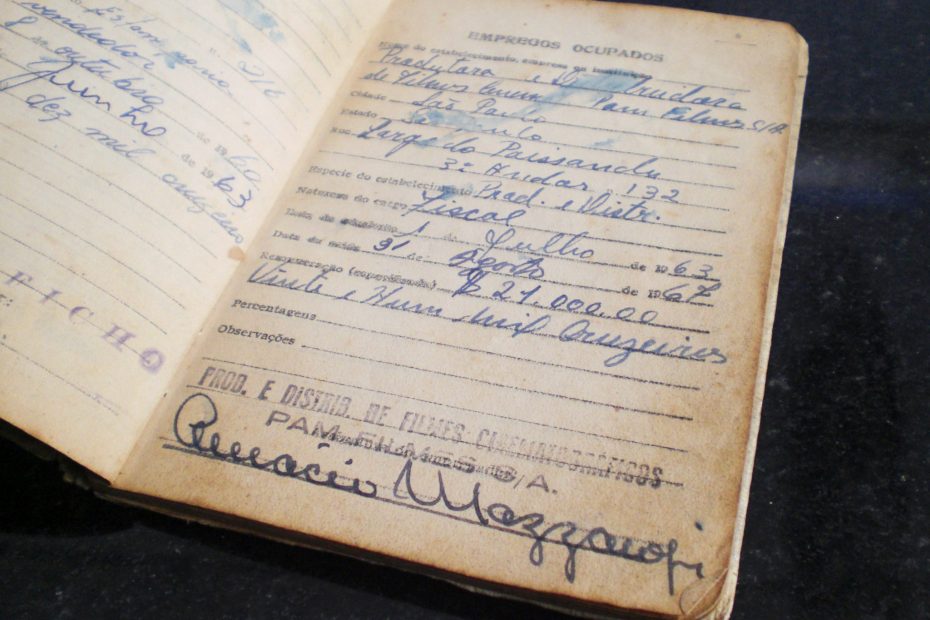 vendedor
8 de outubro de 1960
Junho de 1963
dez mil cruzeiros
FICHO
EMPREGOS OCUPADOS
Nome do estabelecimento, empresa ou instituição
Produtora e Distribuidora
de Filmes Pam Filmes S/A
Cidade São Paulo
Estado
Rua Largo do Paissandu
3º Andar 132
Especie do estabelecimento Prod. e Distr.
Natureza do cargo Fiscal
Data de 1 de Julho de 1963
Data da saida 31 de Agosto de 1967
Remuneração (especificada) $ 21.000.00
Vinte e Hum mil Cruzeiros
Percentagens
Observações
PROD. E DISTRIB. DE FILMES CINEMATOGRÁFICOS
PAM FILMES S/A.
Amacio Mazzaropi